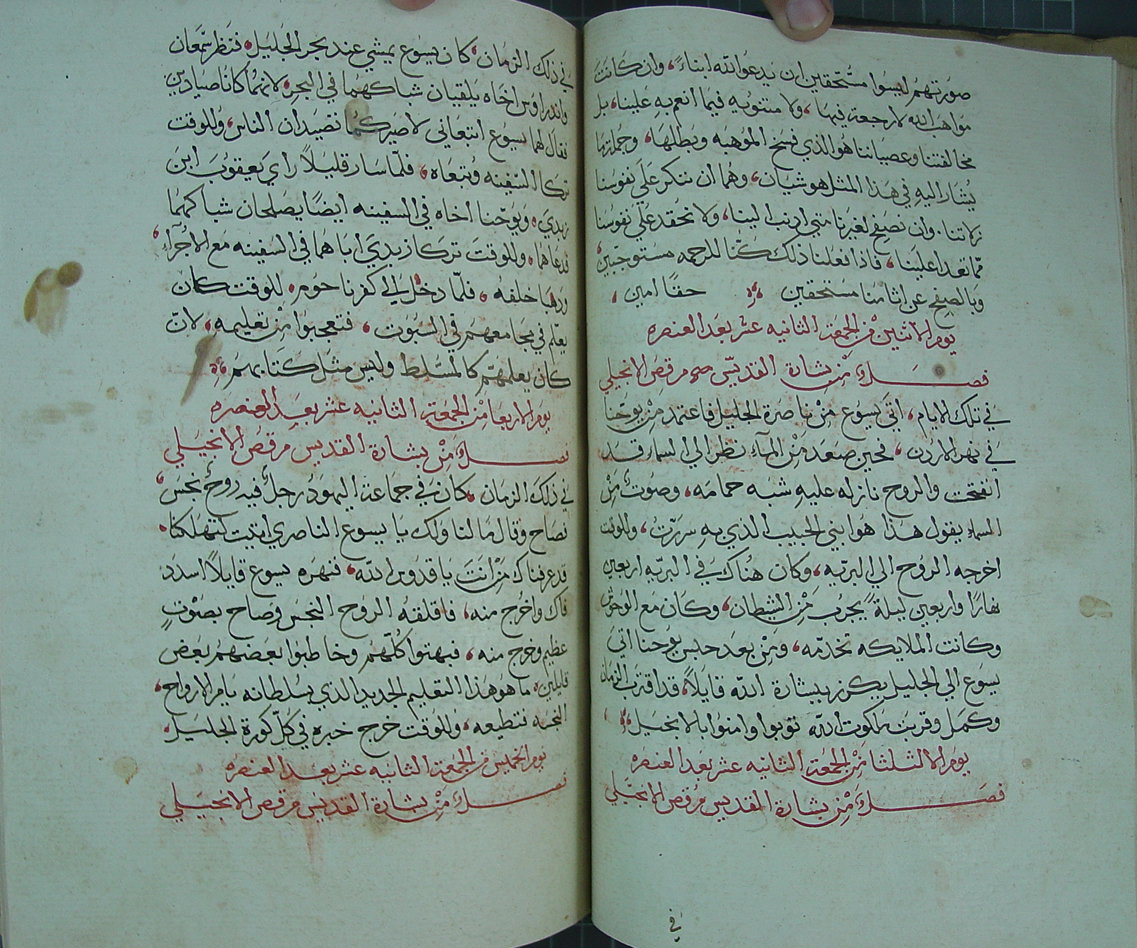 صورتهم ليسوا مستحقين ان يدعوا لله ابناءً، وان كانت
مواهب الله لا رجعة فيها، ولا مثنويه فيما انعم به علينا، بل
مخالفتنا وعصياننا هو الذي نسخ الموهبه وبطلها، وجملة ما
يشار اليه في هذا المثل هو شيان، وهما ان نتكر على نفوسنا
زلاتنا، وان نصفح لغيرنا متى اذنب الينا، ولا نحقد على نفوسنا
مما تعدا علينا، فاذا فعلنا ذلك كنا للرحمه مستوجبين
وبالصفح عن اثامنا مستحقين حقًا امين
يوم الاثنين من الجمعة الثانيه عشر بعد العنصره
فصل من بشارة القديس مرقص الانجيلي
في تلك الايام، اتى يسوع من ناصرة الجليل فاعتمد من يوحنا
في نهر الاردن، فحين صعد من الماء نظر الي السماء قد
انفتحت والروح نازله عليه شبه حمامه، وصوت من
السماء يقول هذا هو ابني الحبيب الذي به سررت، وللوقت
اخرجه الروح الى البريه، وكان هناك في البريه اربعين
نهارًا واربعين ليلة يجرب من الشيطان، وكان مع الوحوش
وكانت الملايكه تخدمه، ومن بعد حبس يوحنا اتى
يسوع الي الجليل يكرز ببشارة الله قايلاً، قد اقترب الزمان
وكمل وقربت ملكوت الله توبوا وامنوا بالانجيل
يوم الالثلثا من الجمعة الثانيه عشر بعد العنصره
فصل من بشارة القديس مرقص الانجيلي
في
في ذلك الزمان، كان يسوع يمشي عند بحر الجليل، فنظر سمعان
واندراوس اخاه يلقيان شباكهما في البحر، لانهما كانا صيادين
فقال لهما يسوع اتبعاني لاصيركما تصيدان الناس، وللوقت
تركا السفينه وتبعاه، فلما سار قليلاً راي يعقوب ابن
زبدي، ويوحنا اخاه في السفينه ايضًا يصلحان شباكهما
فدعاهما، وللوقت تركا زبدي اباهما في السفينه مع الاجراء
وذهبا خلفه، فلما دخل الي كفرناحوم، للوقت كان
يعلم في مجامعهم في السبوت، فتعجبوا من تعليمه، لان
كان يعلمهم كالمسلط وليس مثل كتابهم
يوم الاربعا من الجمعة الثانيه عشر بعد العنصره
فصل من بشارة القديس مرقص الانجيلي
في ذلك الزمان، كان في جماعة اليهود رجل فيه روح نجس
فصاح وقال ما لنا ولك يا يسوع الناصري اتيت لتهلكنا
قد عرفناك من انت يا قدوس الله، فنهره يسوع قايلاً اسدد
فاك واخرج منه، فاقلقه الروح النجس وصاح بصوت
عظيم وخرج منه، فبهتوا كلهم وخاطبوا بعضهم بعض
قايلين، ما هو هذا التعليم الجديد الذي بسلطانه يامر الارواح
النجسه فتطيعه، وللوقت خرج خبره في كل كورة الجليل
يوم الخميس من الجمعة الثانيه عشر بعد العنصره
فصل من بشارة القديس مرقص الانجيلي